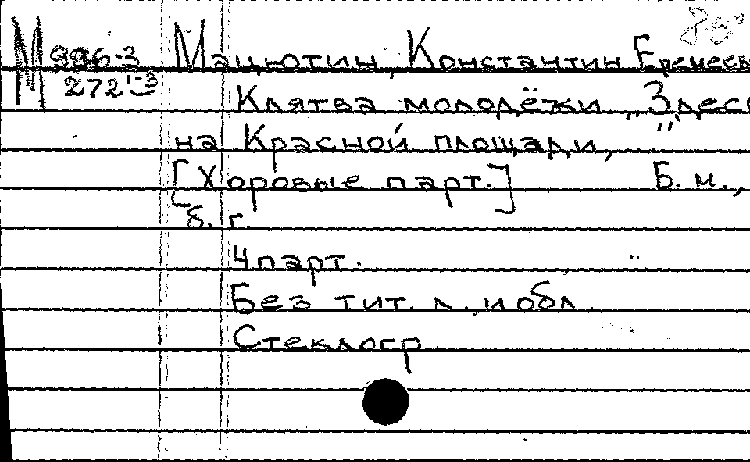 М 996-3 Мацютин, Константин Еремеев
272 1-3 Клятва молодёжи „Здесь
на Красной площади, ..."
[Хоровые парт.] Б. м.,
б. г.
4 парт.
Без тит. л. и обл.
Стеклогр.